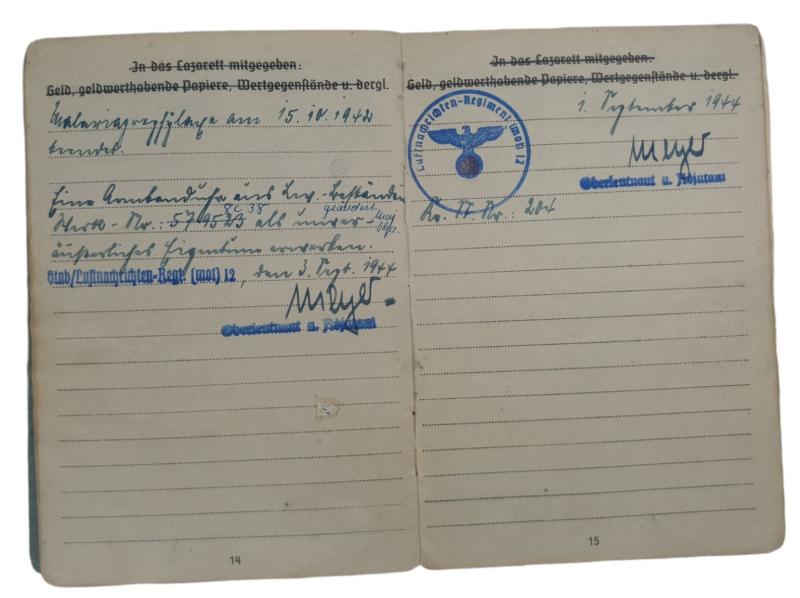 In das Lazarett mitgegeben:
Geld, geldwerthabende Papiere, Wertgegenstände u. dergl.
Malariaprophylaxe am 15.10.1942
beendet.
Eine Armbanduhr aus Lw.-Beständen
8238 geändert
Werk-Nr.: 579523 als unver-
äußerliches Eigentum erworben.
Stab/Luftnachrichten-Regt. (mot) 12, den 3. Sept. 1944
Meyer
Oberleutnant u. Adjutant
14
In das Lazarett mitgegeben.
Geld, geldwerthabende Papiere, Wertgegenstände u. dergl.
1. September 1944
Luftnachrichten-Regiment mot 12
Meyer
Oberleutnant u. Adjutant
Nr.: 204
15